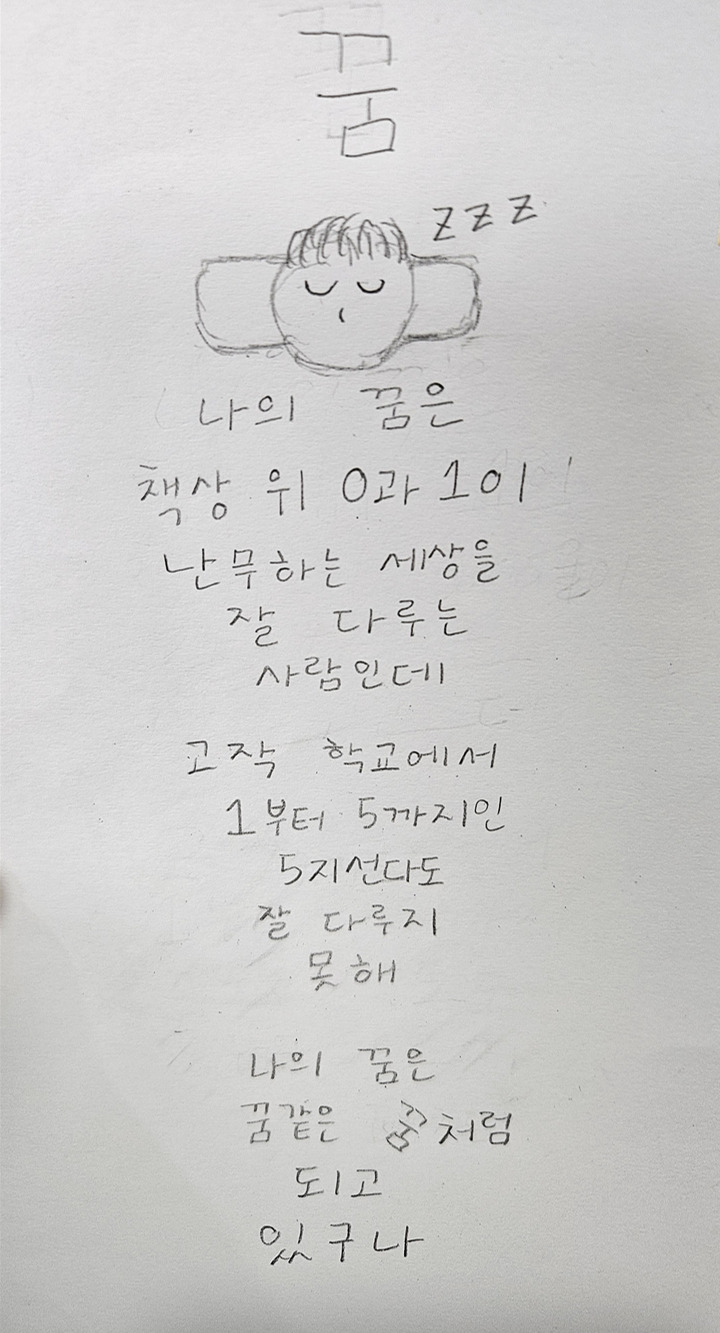 꿈
z z z
나의 꿈은
책상 위 0과 1이
난무하는 세상을
잘 다루는
사람인데
고작 학교에서
1부터 5까지인
5지선다도
잘 다루지
못해
나의 꿈은
꿈같은 꿈처럼
되고
있구나